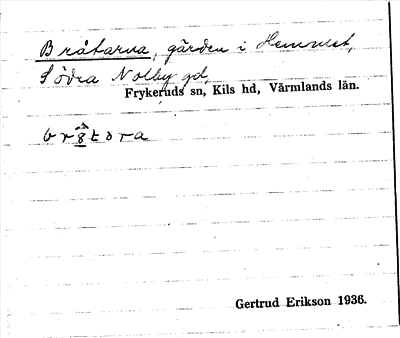 Bråtarna, gården i Hemmet,
Södra Nolby gd,
Frykeruds sn, Kils hd, Värmlands län.
Gertrud Erikson 1936.